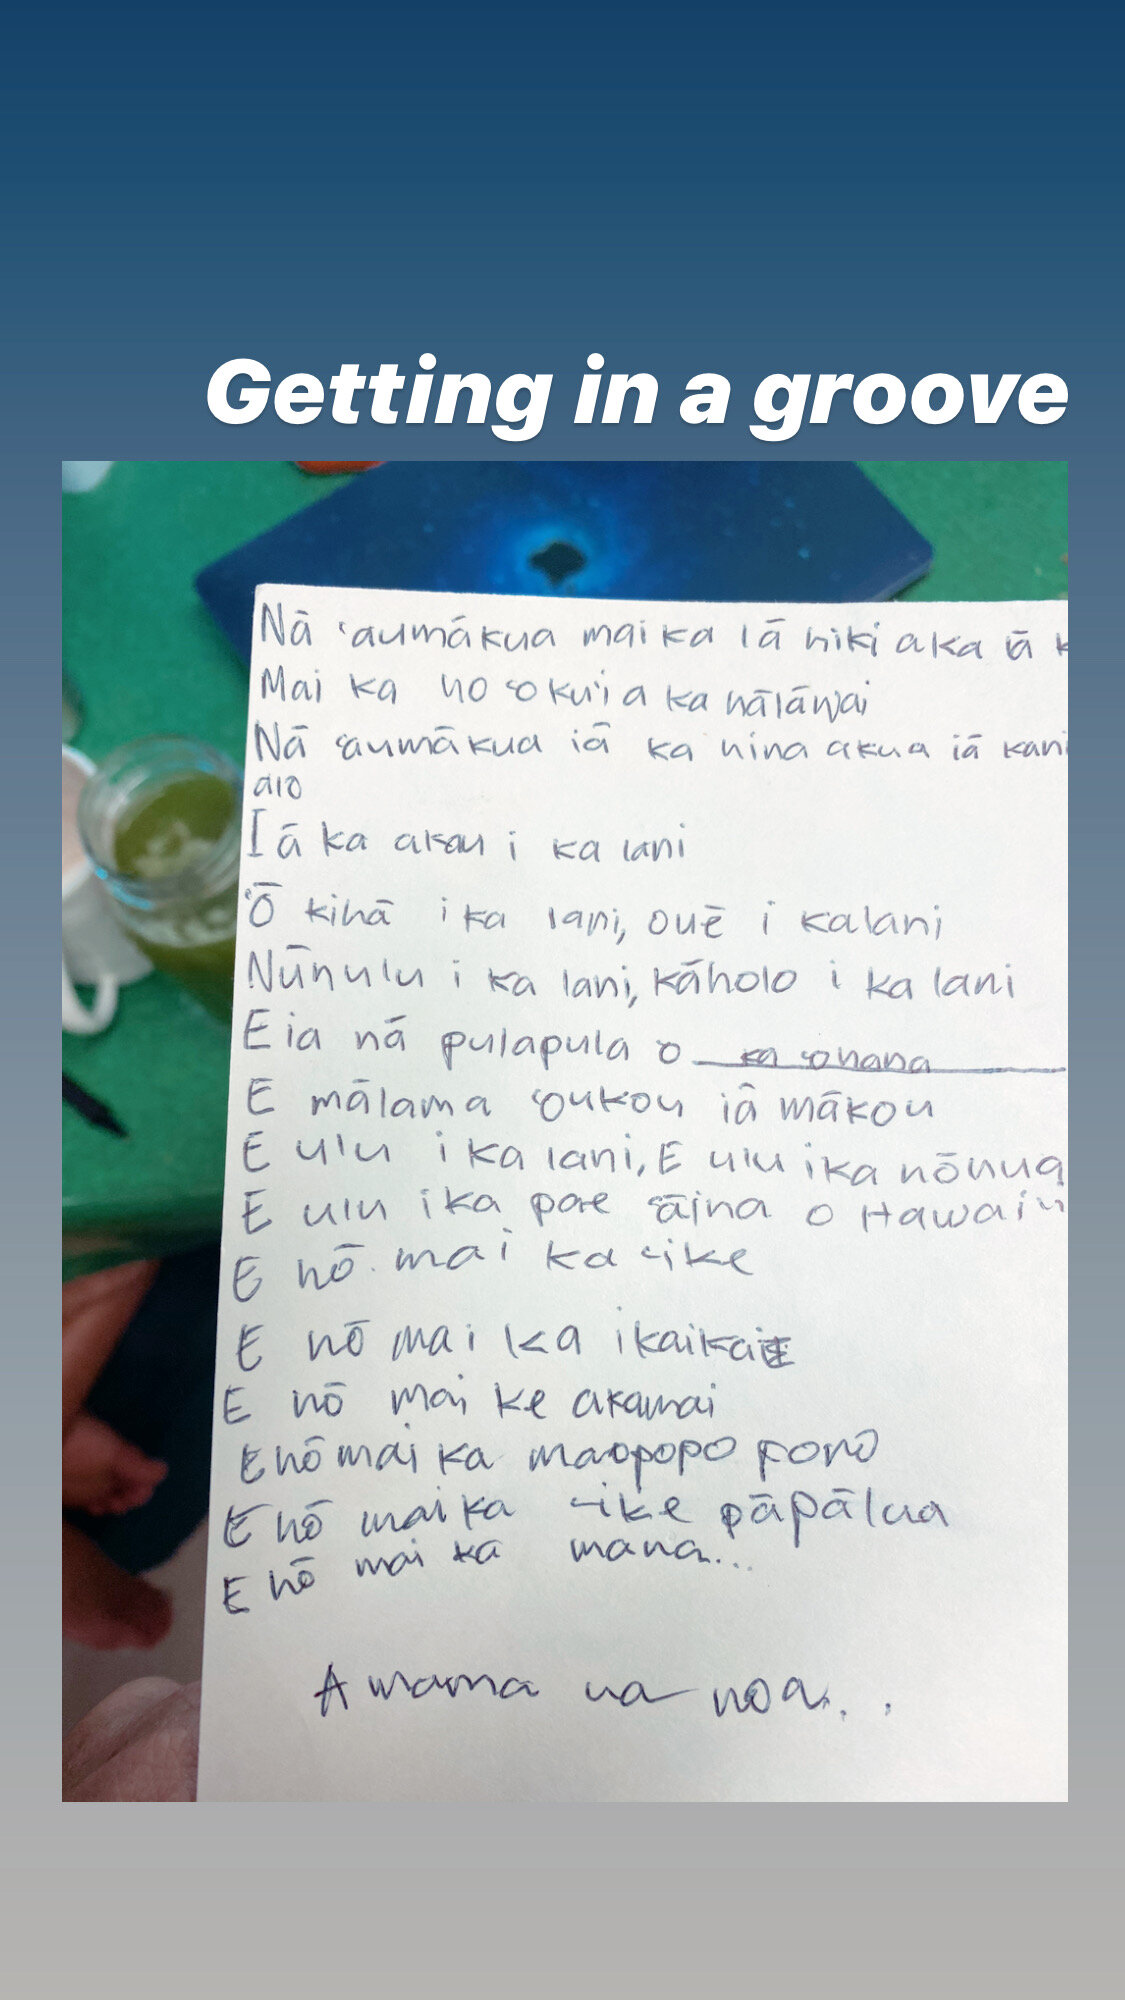 Getting in a groove
Nā ʻaumākua mai ka lā hiki a ka iā
Mai ka hoʻokuʻi a ka hālāwai
Nā ʻaumākua iā ka hina akua iā kahi
alo
Iā ka akau i ka lani
ʻŌ kīhā i ka lani, ouē i ka lani
Nūnulu i ka lani, kāholo i ka lani
Eia nā pulapula o ka ʻohana
E mālama ʻoukou iā mākou
E ulu i ka lani, E ulu i ka hōnua
E ulu i ka pae ʻāina o Hawaiʻi
E hō mai ka ʻike
E hō mai ka ikaika
E hō mai ke akamai
E hō mai ka maopopo pono
E hō mai ka ʻike pāpālua
E hō mai ka mana...
Amama ua noa...